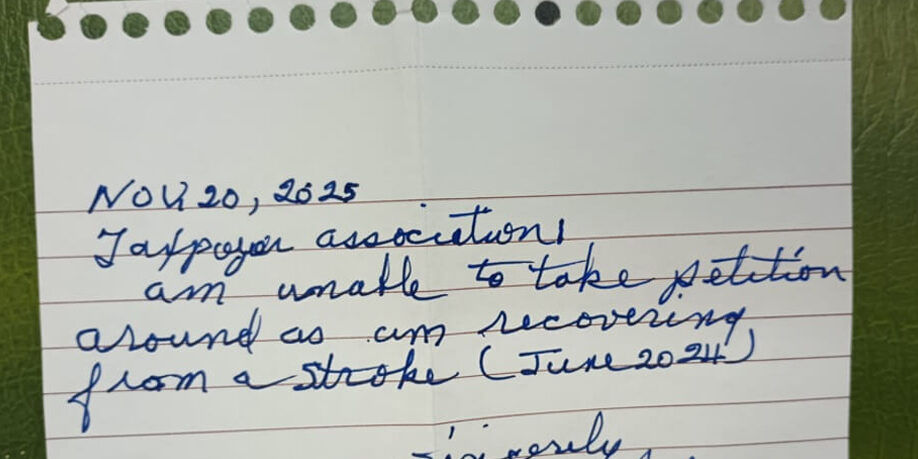 Nov 20, 2025
Taxpayer association,
am unable to take petition
around as am recovering
from a stroke (June 2024)
Sincerely